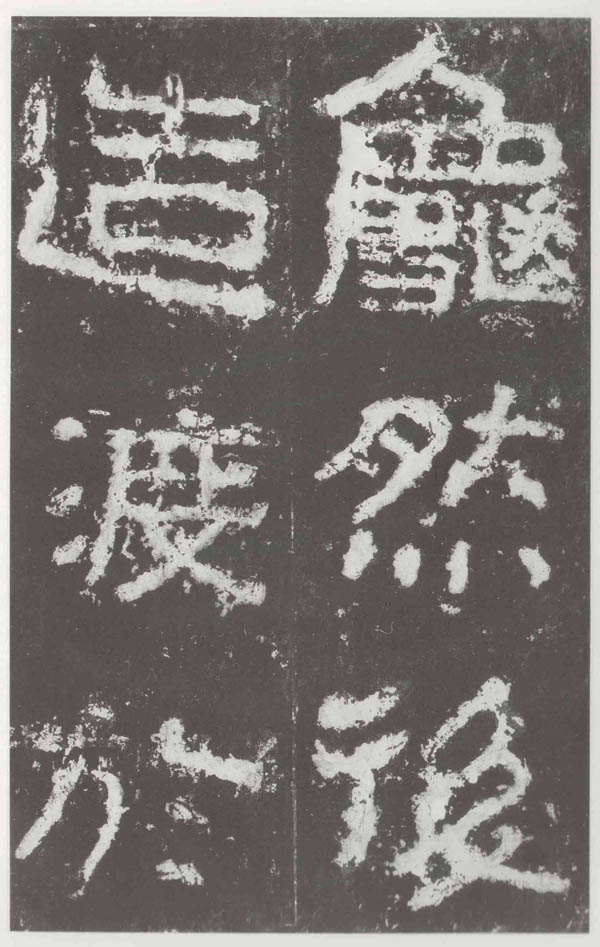 龜然後
造渡於